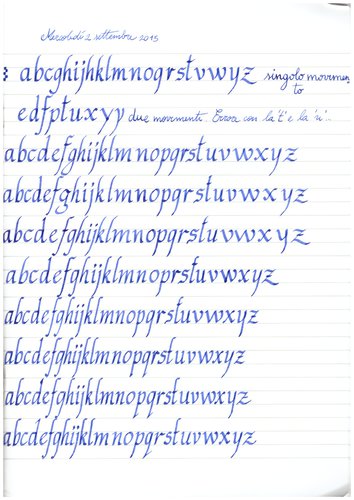 Mercoledì 2 settembre 2015
abcghijhklmnoqrstvwyz singolo movimen
to
edfptuxyy due movimenti. Errori con la 't' e la 'u'..
abcdefghijklmnopqrstuvwxyz
abcdefghijklmnopqrstuvwxyz
abcdefghijklmnopqrstuvwxyz
abcdefghijklmnoprstuvwxyz
abcdefghijklmnopqrstuvwxyz
abcdefghijklmnopqrstuvwxyz
abcdefghijklmnopqrstuvwxyz
abcdefghijklmnopqrstuvwxyz